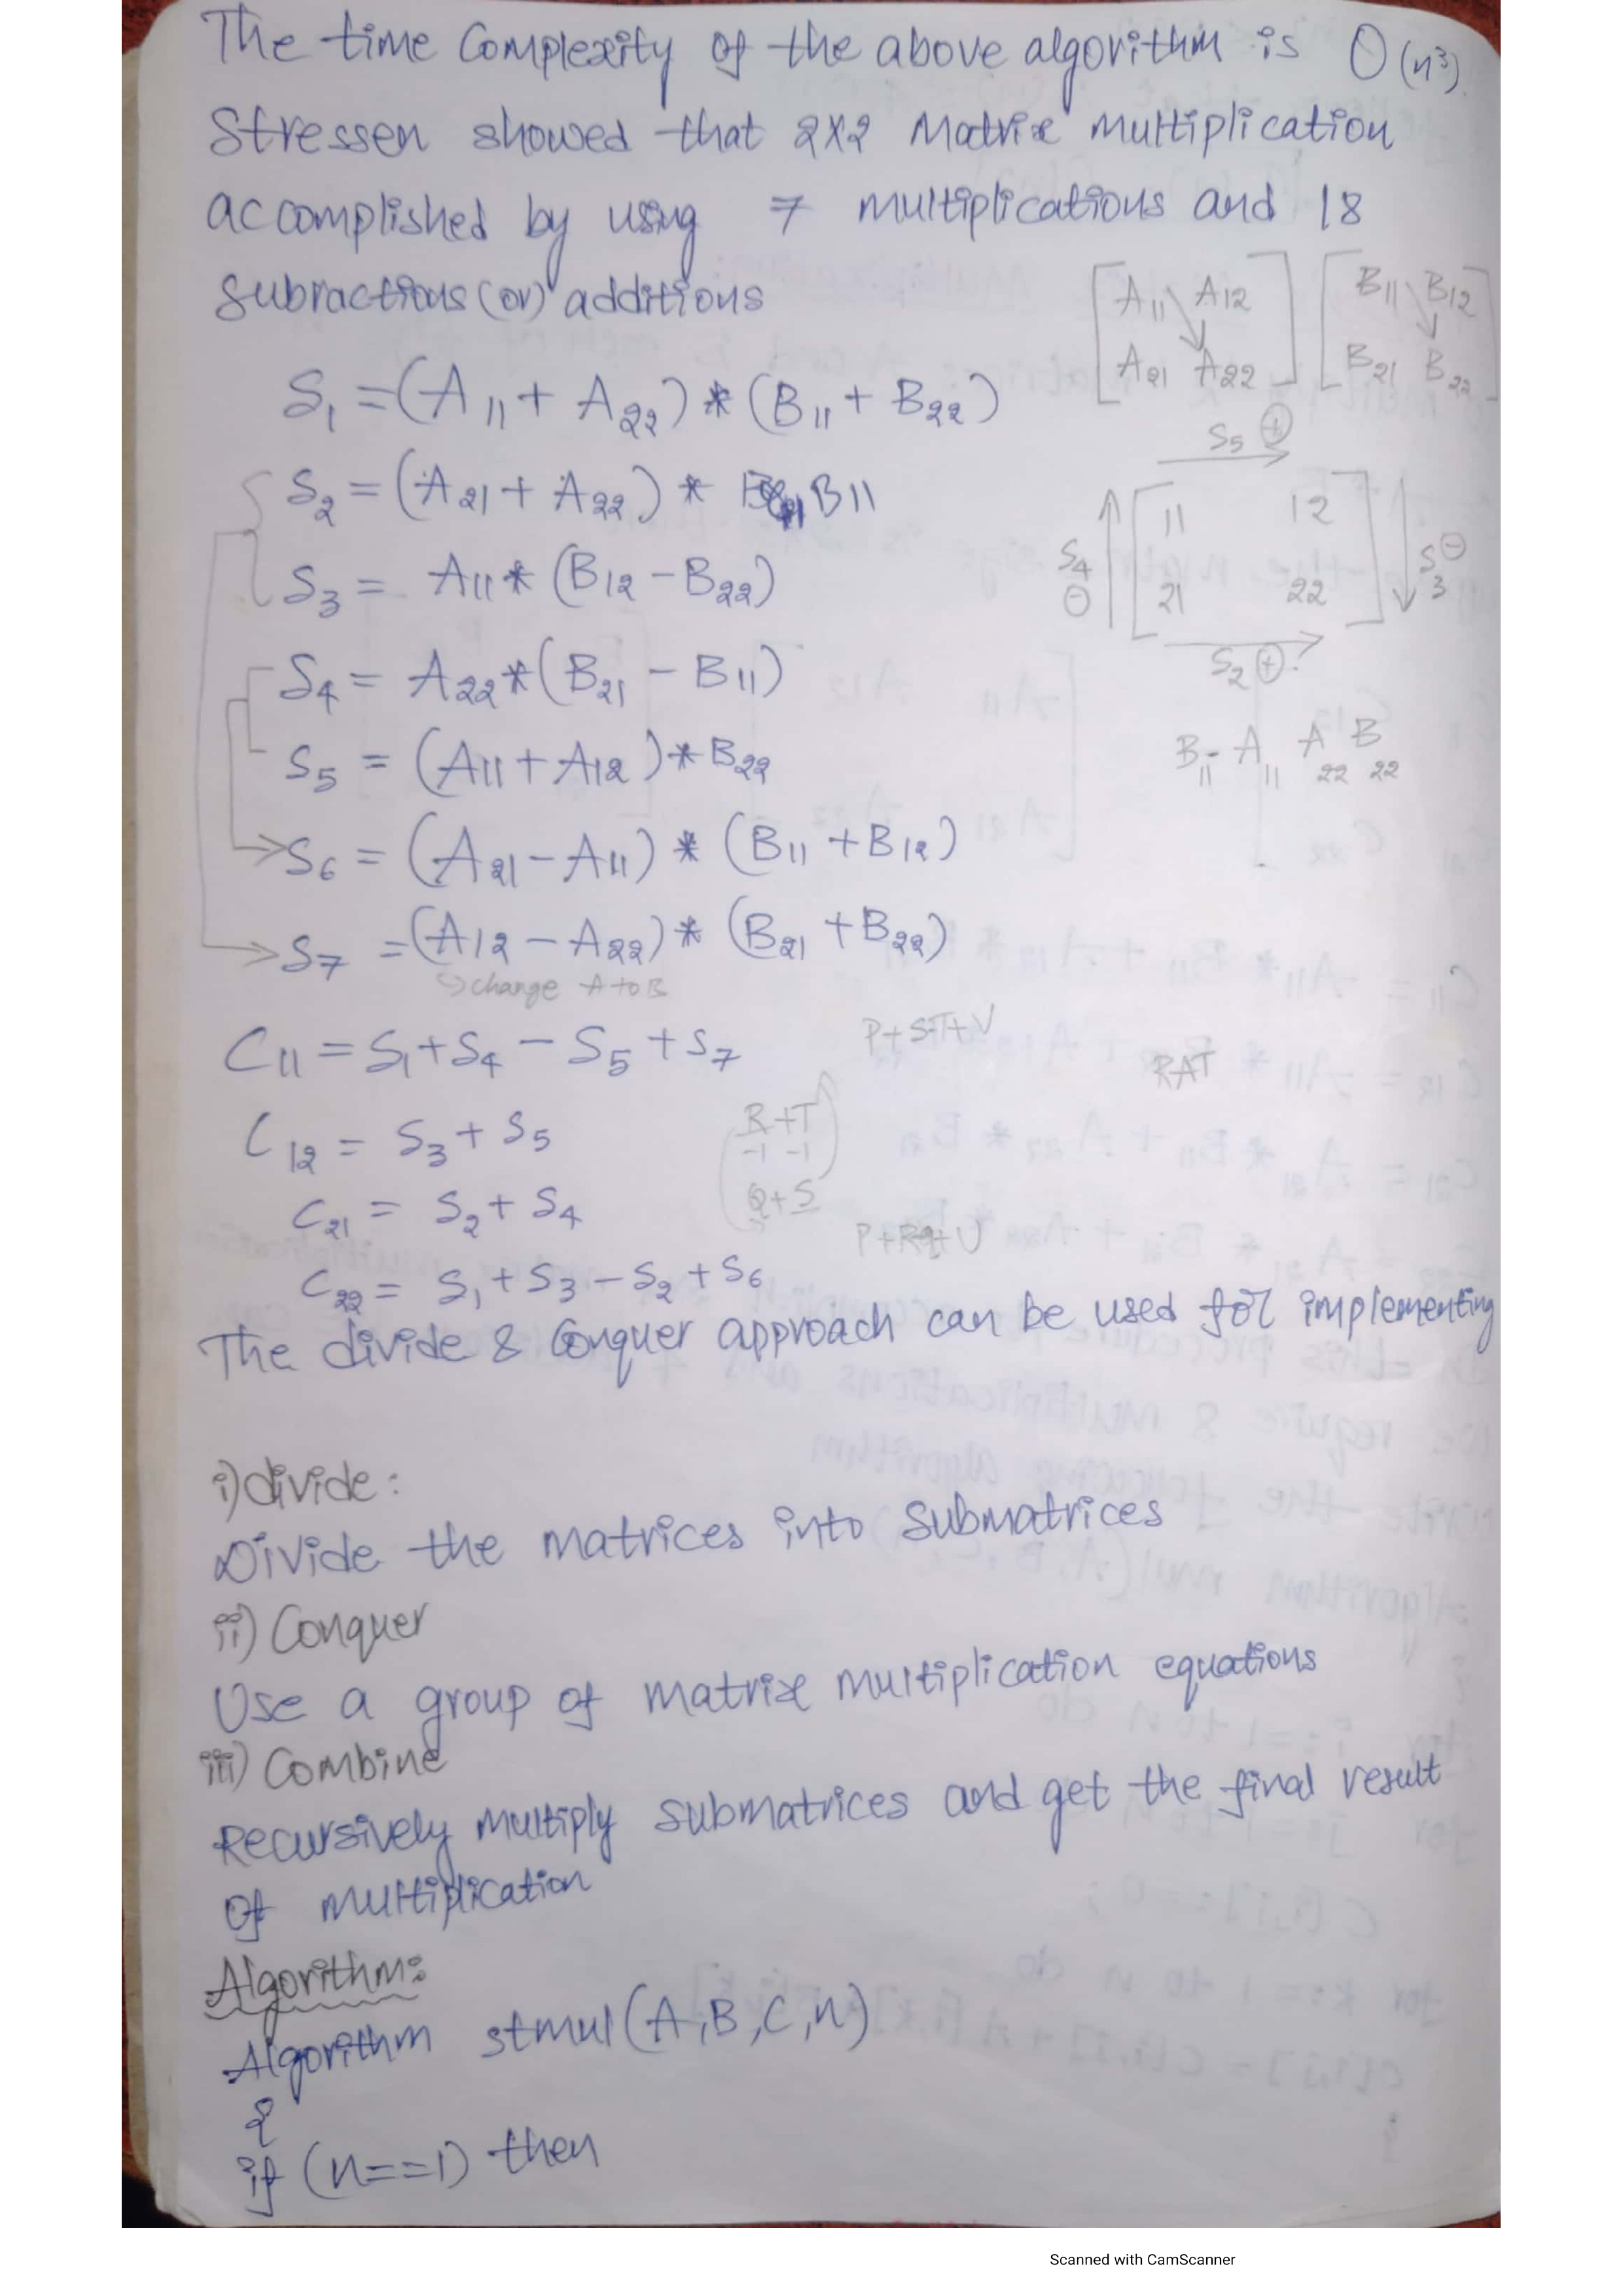 The time Complexity of the above algorithm is O(n³).
Stressen showed that 2X2 Matrix multiplication
accomplished by using 7 multiplications and 18
Subractions (or) additions
[A11 A12 [B11 B12
A21 A22] B21 B22]
S1 = (A11 + A22) * (B11 + B22)
S5 ⊕
S2 = (A21 + A22) * B11
[11 12
21 22]
S4 ⊖
S3 ⊖
S2 ⊕
S3 = A11 * (B12 - B22)
S4 = A22 * (B21 - B11)
S5 = (A11 + A12) * B22
B11 - A11 A22 B22
S6 = (A21 - A11) * (B11 + B12)
S7 = (A12 - A22) * (B21 + B22)
change A to B
C11 = S1 + S4 - S5 + S7
P+S-T+V
RAT
C12 = S3 + S5
R+T
-1 -1
C21 = S2 + S4
Q+S
C22 = S1 + S3 - S2 + S6
The divide & Conquer approach can be used for implementing
i) divide :
Divide the matrices into Submatrices
ii) Conquer
Use a group of matrix multiplication equations
iii) Combine
Recursively multiply submatrices and get the final result
of multiplication
Algorithm:
Algorithm stmul(A,B,C,n)
{
if (n==1) then
Scanned with CamScanner